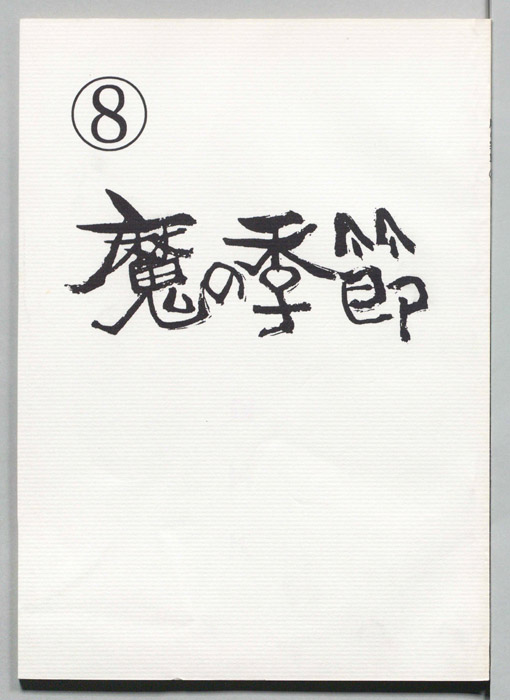 ⑧
魔の季節